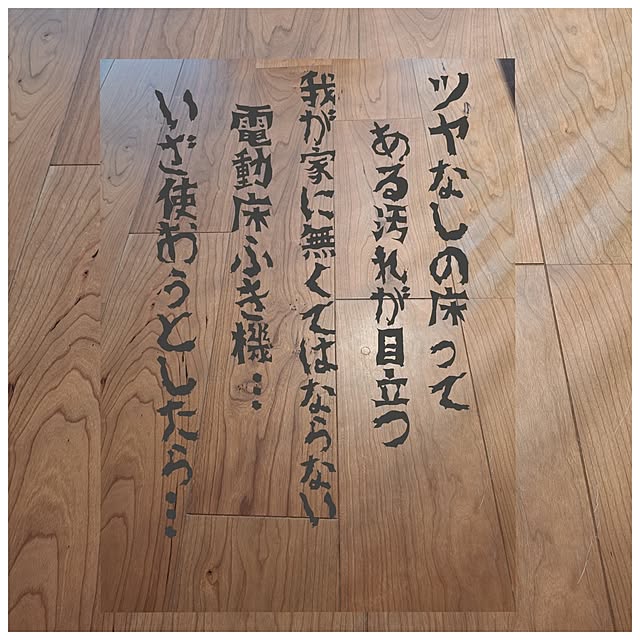 ツヤなしの床って
ある汚れが目立つ
我が家に無くてはならない
電動床ふき機…
いざ使おうとしたら…